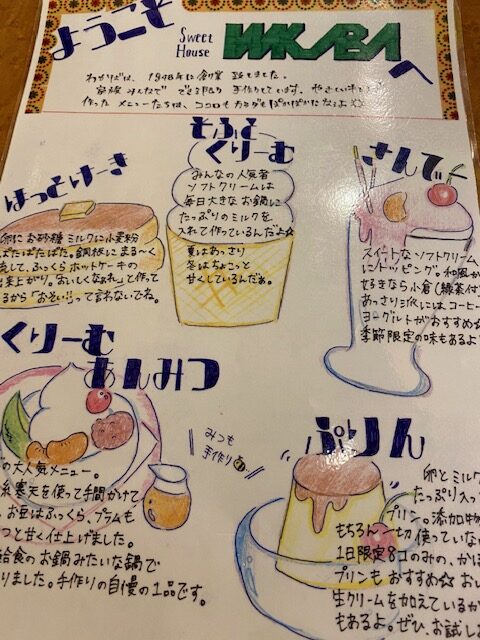 ようこそ
Sweet
House
WAKABA
へ
わかばは、1948年に創業 致しました。
家族 みんなで できる限り 手作りしています。やさしい味で
作った メニューたちは、ココロもカラダもぽかぽかになるよ
ほっとけーき
卵に お砂糖 ミルクに小麦粉
ぱたぱたぱた。銅板にまる～く
流して、ふっくら ホットケーキの
出来上がり。「おいしくなぁれ」と作って
るから「おそい!!」って言わないでね。
そふとくりーむ
みんなの人気者
ソフトクリームは
毎日大きなお鍋に
たっぷりのミルクを
入れて作っているんだよ☆
夏はあっさり
冬はちょこっと
甘くしているんだぁ。
さんでー
スイートなソフトクリーム
にトッピング。和風が
好きなら小倉(緑茶付
あっさり派には コーヒー
ヨーグルトがおすすめ☆
季節限定の味もあるよ
くりーむ
あんみつ
の大人気メニュー。
糸寒天を使って手間かけて
、お豆はふっくら、プラムも
っと甘く仕上げました。
給食のお鍋みたいな鍋で
りました。手作りの自慢の1品です。
みつも
手作り
ぷりん
卵とミルク
たっぷり入っ
プリン。添加物
もちろん 一切 使っていな
1日限定8コのみの、かぼ
プリンも おすすめ☆ おし
生クリームを加えているか
もあるよ。ぜひ お試し